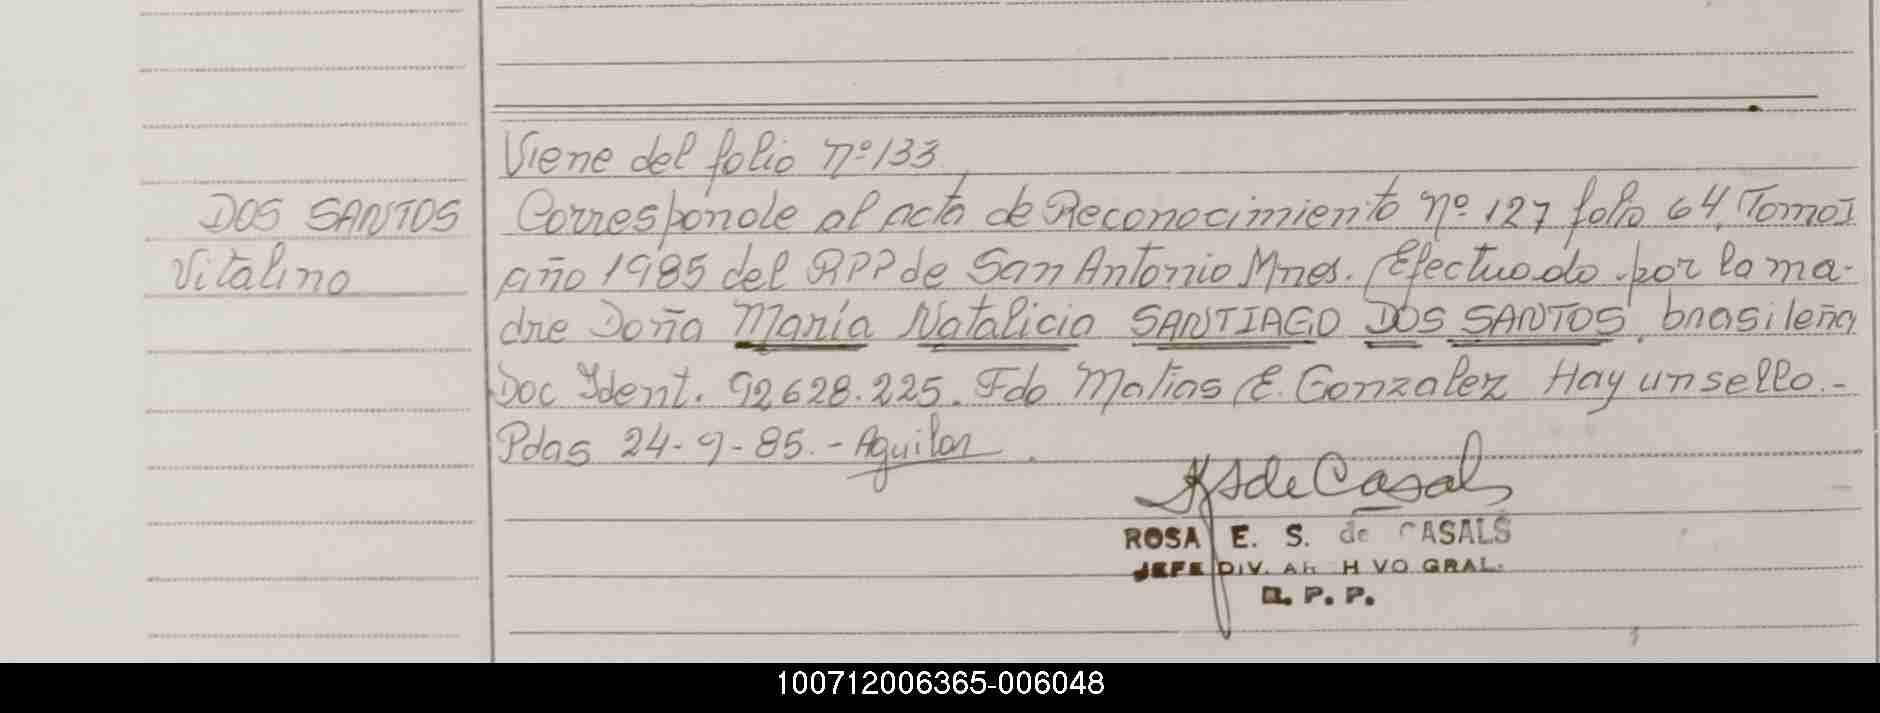 Viene del folio nº 133
DOS SANTOS
Vitalino
Corresponde al acta de Reconocimiento nº 127 folio 64, Tomo I
año 1985 del RPP de San Antonio Mnes. Efectuado por la ma-
dre Doña María Natalicia SANTIAGO DOS SANTOS, brasileña
Doc Ident. 92628.225. Fdo Matias E. Gonzalez Hay un sello.-
Pdas 24-9-85.- Aguilar
S de Casals
ROSA E. S. de CASALS
JEFE DIV. AR H VO GRAL.
R. P. P.
100712006365-006048